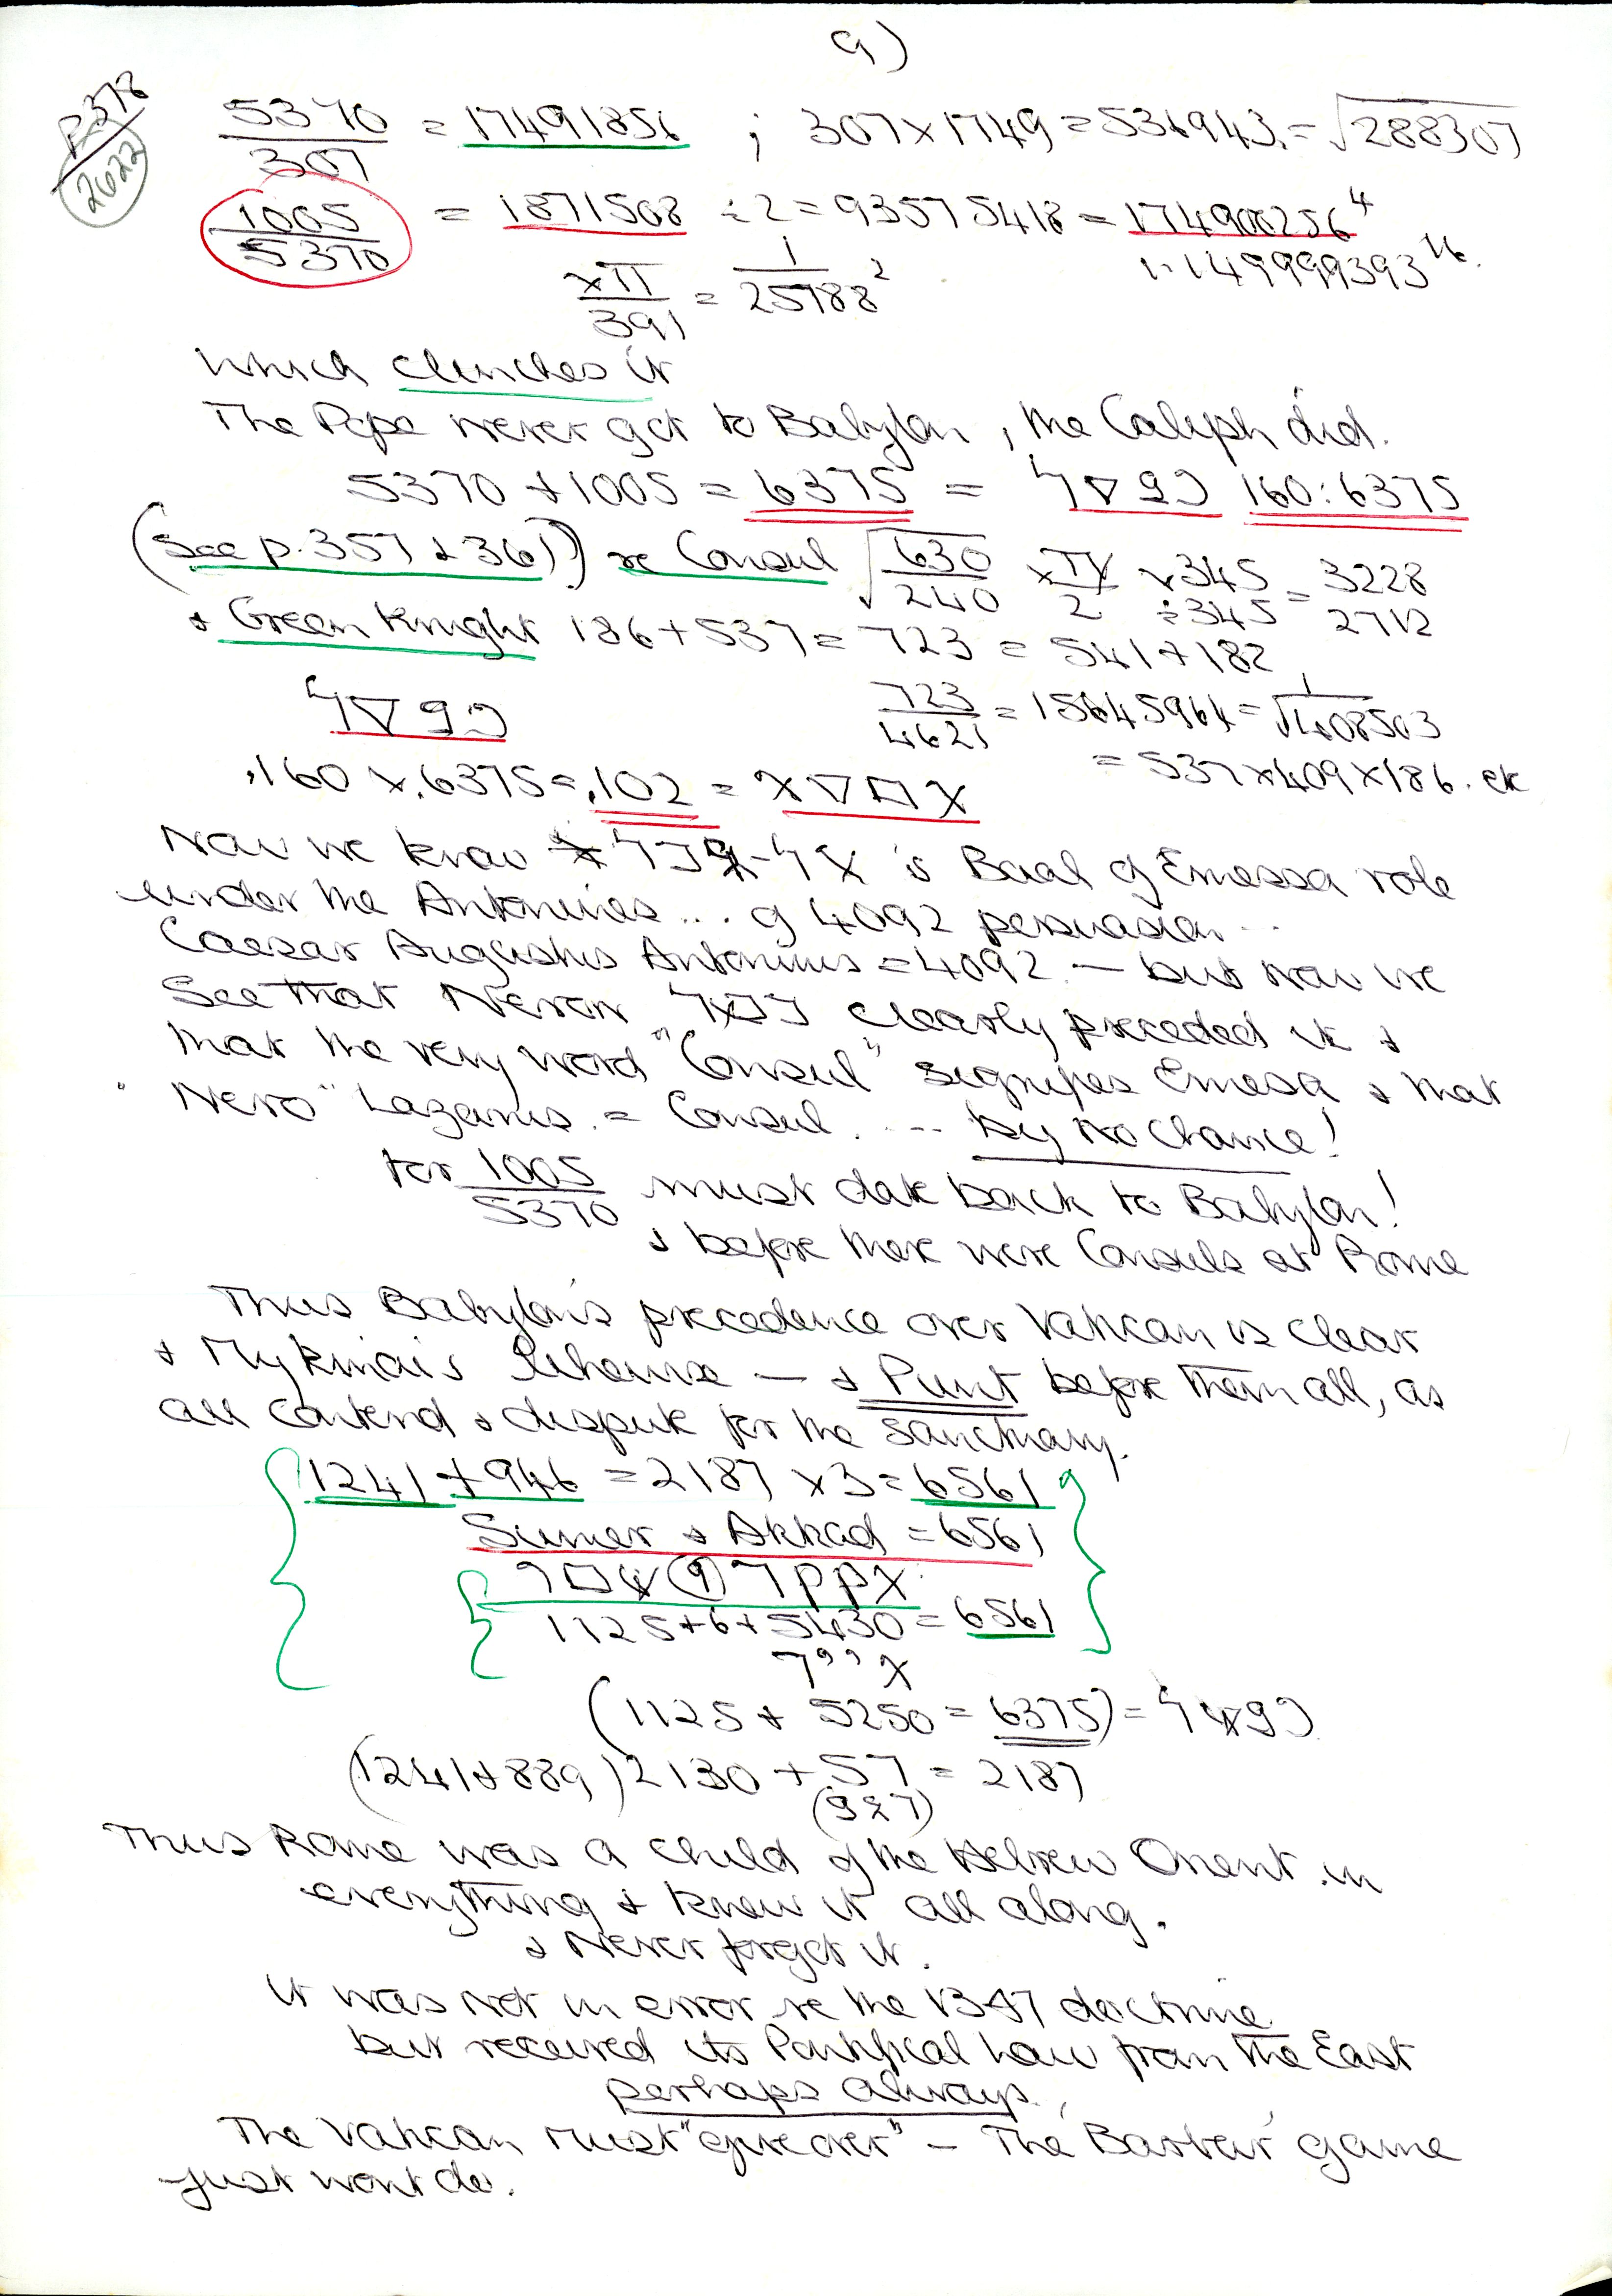 9)
P378
2622
5370/307 = 17491856 ; 307×1749 = 536943 = √288307
1005/5370 = 1871508 ÷2 = 93575418 = 174900256⁴
×π/391 = 1/25788² 1.149999393¹⁶
which clinches it
The Pope never got to Babylon, the Caliph did.
5370 + 1005 = 6375 = 160:6375
(See p.357 & 361) re Consul √630/240 × π/2 ×345 ÷345 = 3228 2712
& Green Knight 186+537 = 723 = 541+182
723/4621 = 15645964 = 1/√408503
.160 × .6375 = .102 = = 537×409×186. etc
Now we know is Baal of Emessa role
under the Antonines ... of 4092 persuasion ...
Caesar Augustus Antoninus = 4092 — but now we
See that Neron clearly preceded it &
that the very word "Consul" signifies Emesa & that
"Nero" Lazarus = Consul .... by no chance!
for 1005/5370 must date back to Babylon!
& before there were Consuls at Rome
Thus Babylon's precedence over Vatican is clear
& Mykinai's likewise — & Punt before them all, as
all contend & dispute for the sanctuary.
1241 + 946 = 2187 × 3 = 6561
Sumer & Akkad = 6561
1125+6+5430 = 6561
(1125 + 5250 = 6375) =
(1241+889) 2130 + 57 = 2187
Thus Rome was a child of the Hebrew Orient in
everything & knew it all along.
& Never forgot it.
it was not in error re the 1347 doctrine
but received its Pontifical Law from the East
perhaps always.
The Vatican must "give over" – The Barber game
just wont do.